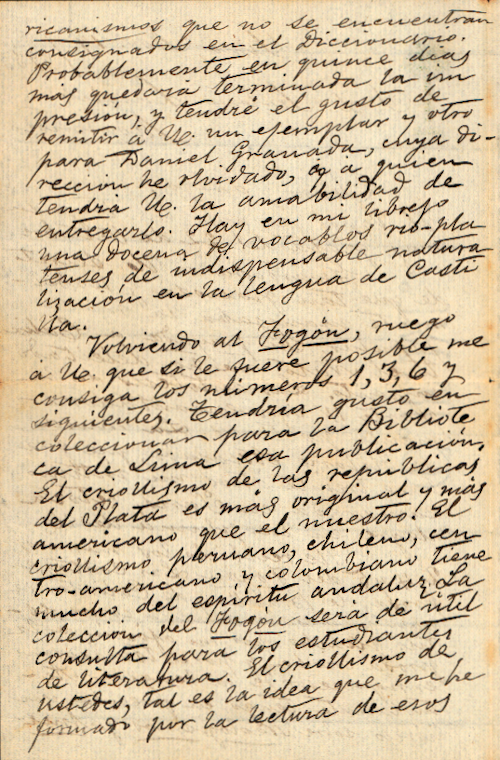 ricanismos que no se encuentran
consignados en el Diccionario.
Probablemente en quince dias
más quedará terminada la im
presión, y tendré el gusto de
remitir á U. un ejemplar y otro
para Daniel Granada, cuya di-
rección he olvidado, y á quien
tendrá U. la amabilidad de
entregarlo. Hay en mi librejo
una docena de vocablos rio-pla
tenses, de indispensable natura
lización en la lengua de Casti
lla.
Volviendo al Fogón, ruego
á U. que si le fuere posible me
consiga los números 1, 3, 6 y
siguientes. Tendría gusto en
coleccionar para la Bibliote
ca de Lima esa publicación.
El criollismo de las repúblicas
del Plata es más original y más
americano que el nuestro. El
criollismo peruano, chileno, cen
tro-americano y colombiano tiene
mucho del espíritu andaluz. La
colección del Fogón será de útil
consulta para los estudiantes
de literatura. El criollismo de
ustedes, tal es la idea que me he
formado por la lectura de esos